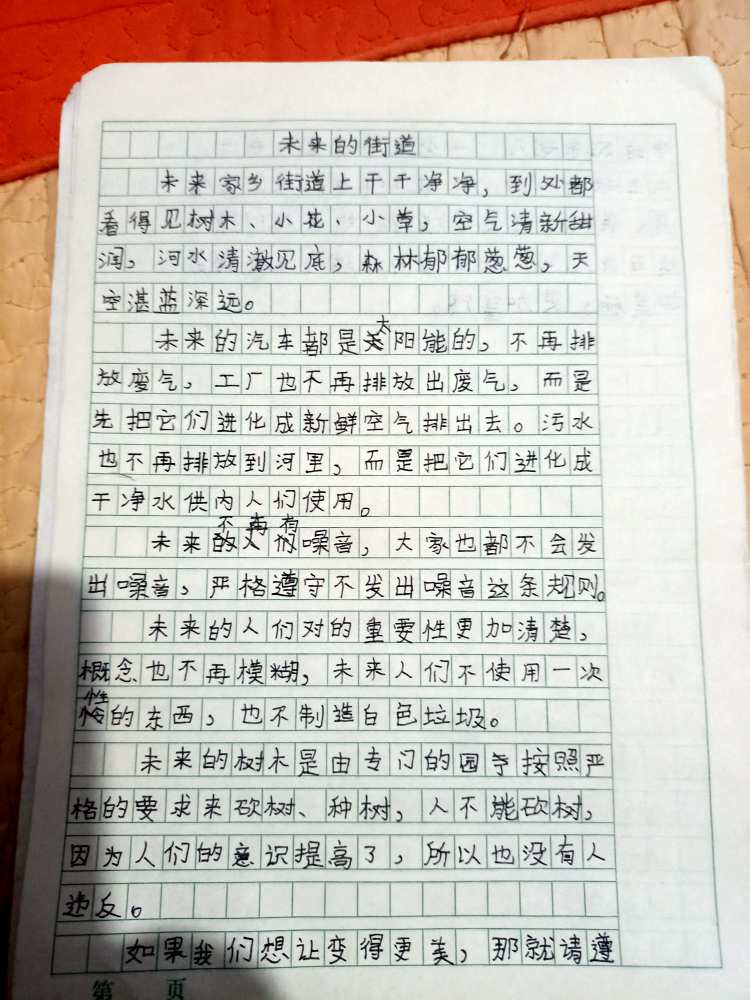 未来的街道
未来家乡街道上干干净净，到处都
看得见树木、小花、小草，空气清新甜
润，河水清澈见底，森林郁郁葱葱，天
空湛蓝深远。
未来的汽车都是太阳能的，不再排
放废气，工厂也不再排放出废气，而是
先把它们进化成新鲜空气排出去。污水
也不再排放到河里，而是把它们进化成
干净水供内人们使用。
未来不再有噪音，大家也都不会发
出噪音，严格遵守不发出噪音这条规则。
未来的人们对的重要性更加清楚，
概念也不再模糊，未来人们不使用一次
性的东西，也不制造白色垃圾。
未来的树木是由专门的园丁按照严
格的要求来砍树、种树，人不能砍树，
因为人们的意识提高了，所以也没有人
违反。
如果我们想让变得更美，那就请遵
第 页